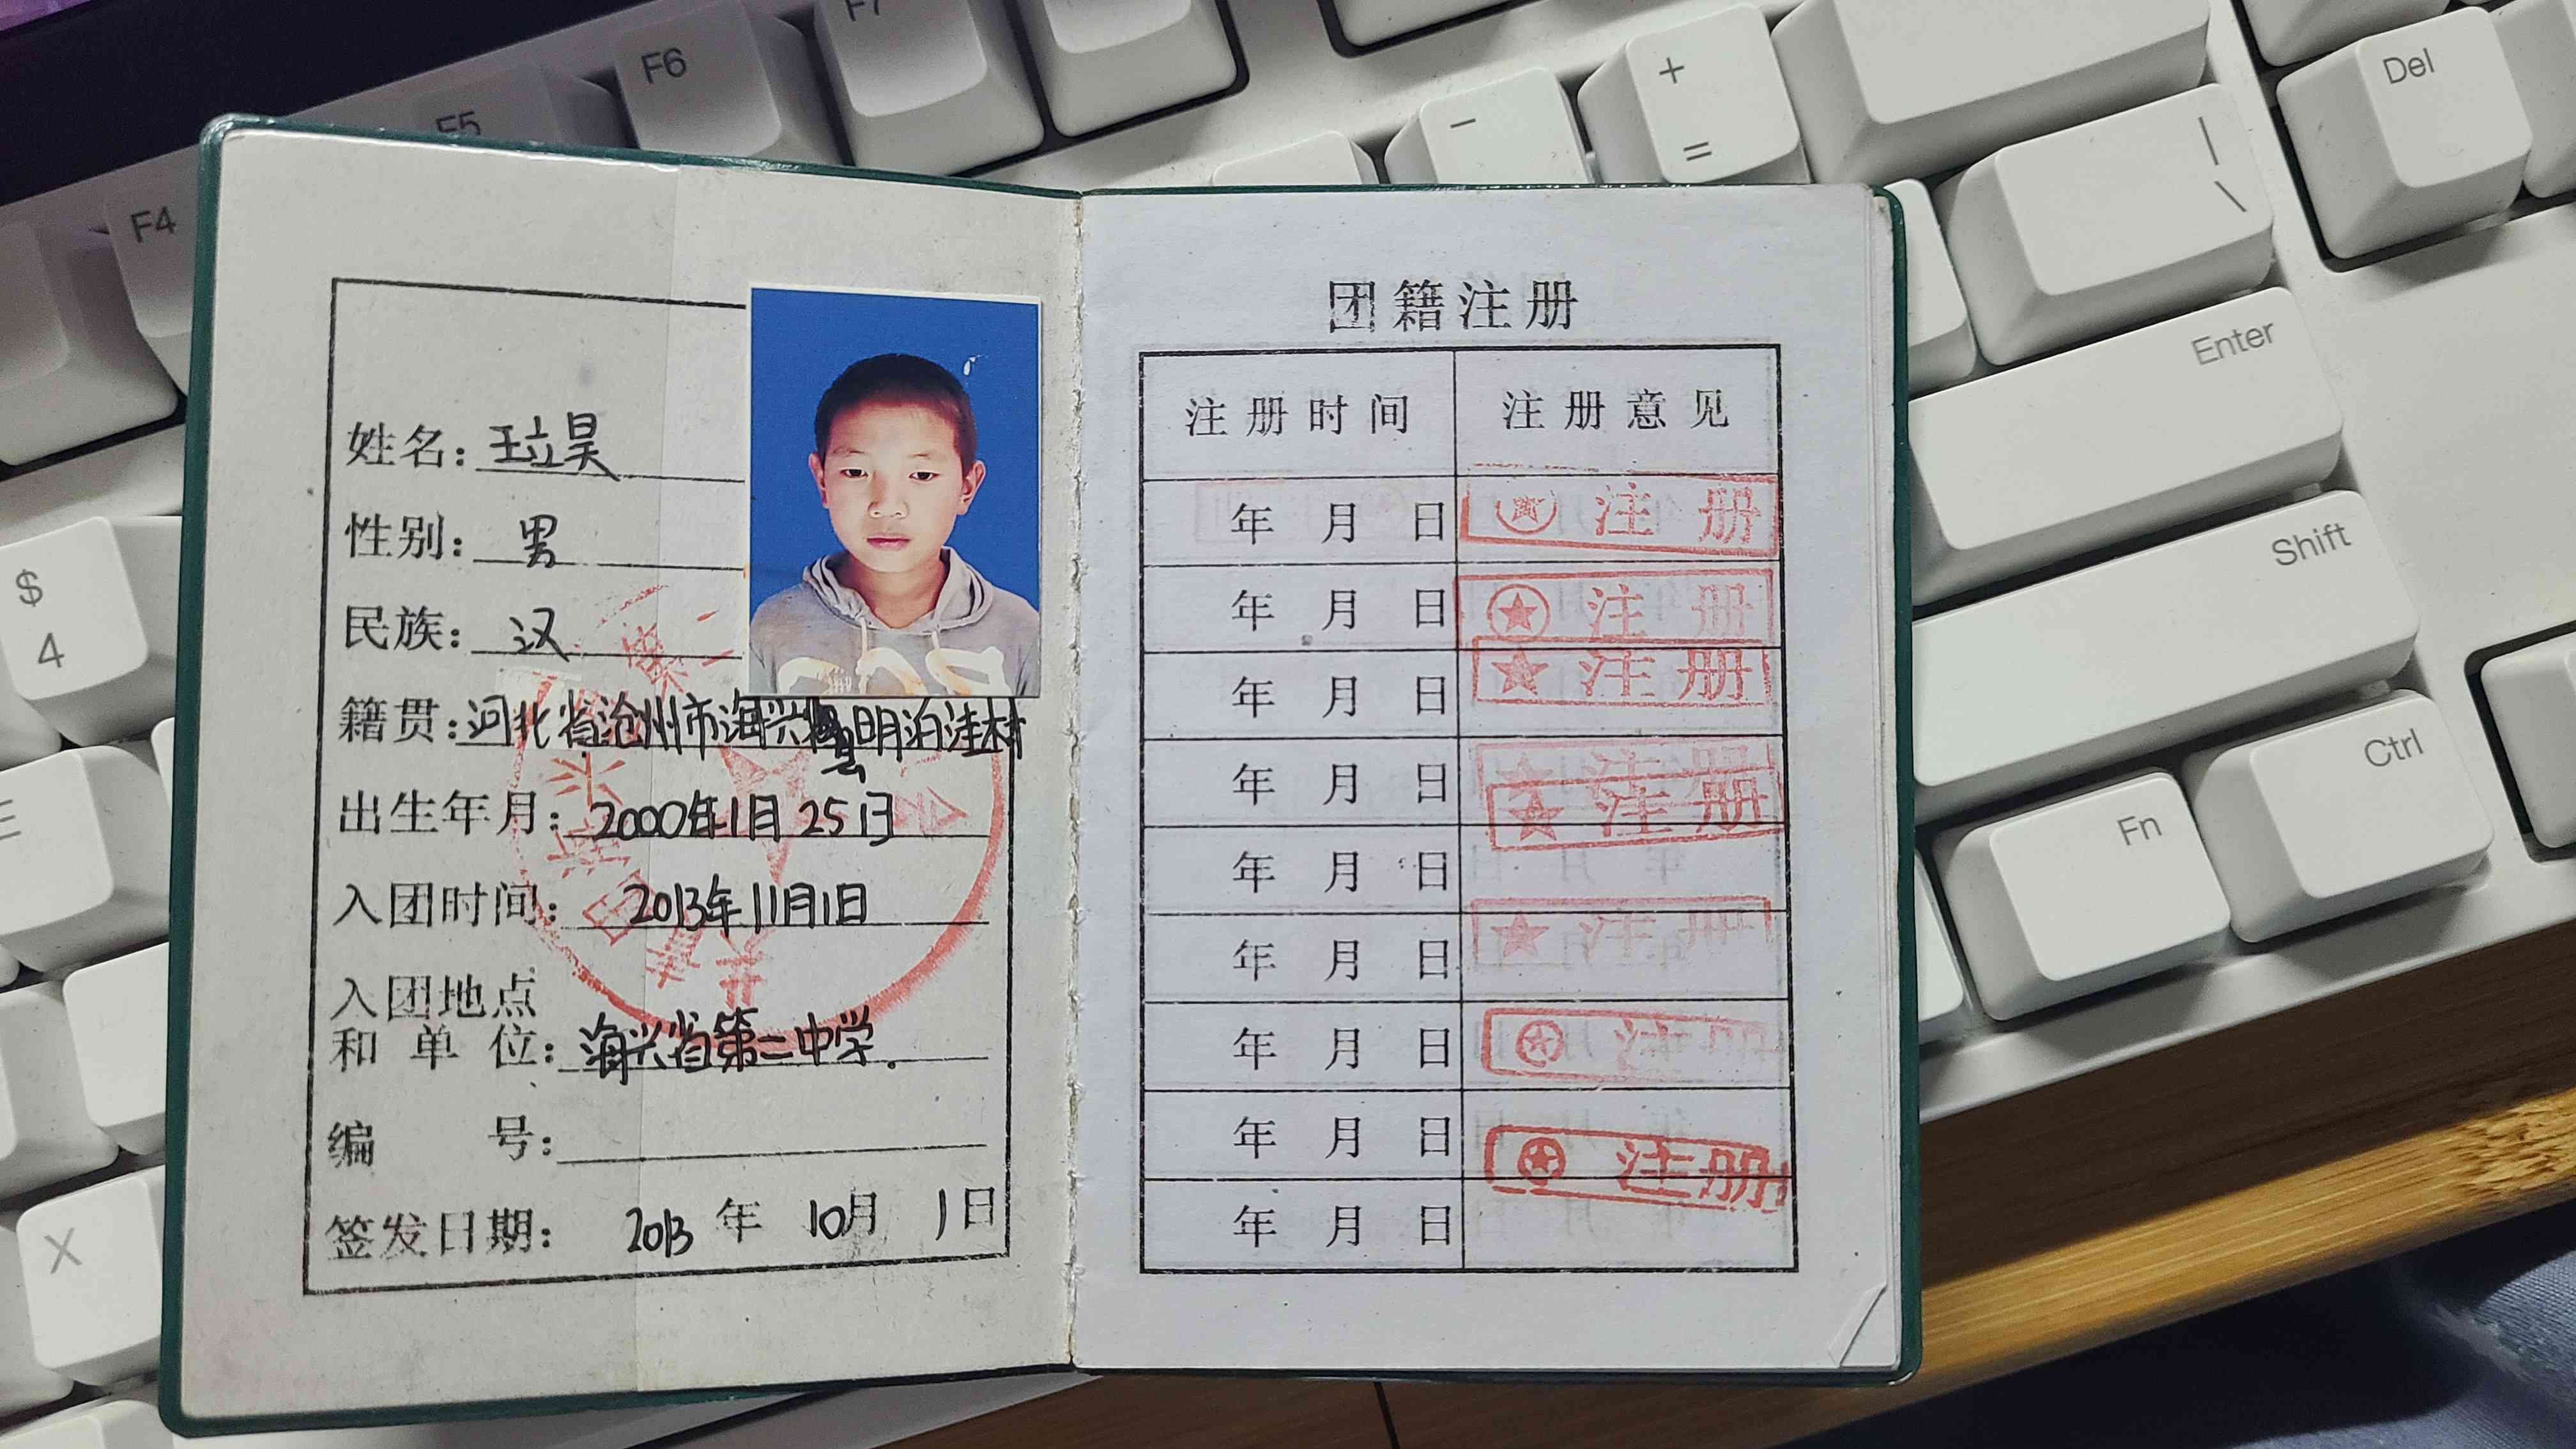 姓名：
性别：男
民族：汉
籍贯：河北省沧州市海兴县明泊洼村
出生年月：2000年1月25日
入团时间：2013年11月1日
入团地点
和单位：海兴省第二中学
编号：
签发日期：2013年10月1日
团籍注册
注册时间 注册意见
年 月 日 注册
年 月 日 注册
年 月 日 注册
年 月 日 注册
年 月 日 注册
年 月 日 注册
年 月 日 注册
年 月 日 注册
年 月 日
X
$
4
F4
F5
F6
F7
-
+
=
|
\
Enter
Shift
Fn
Ctrl
Del